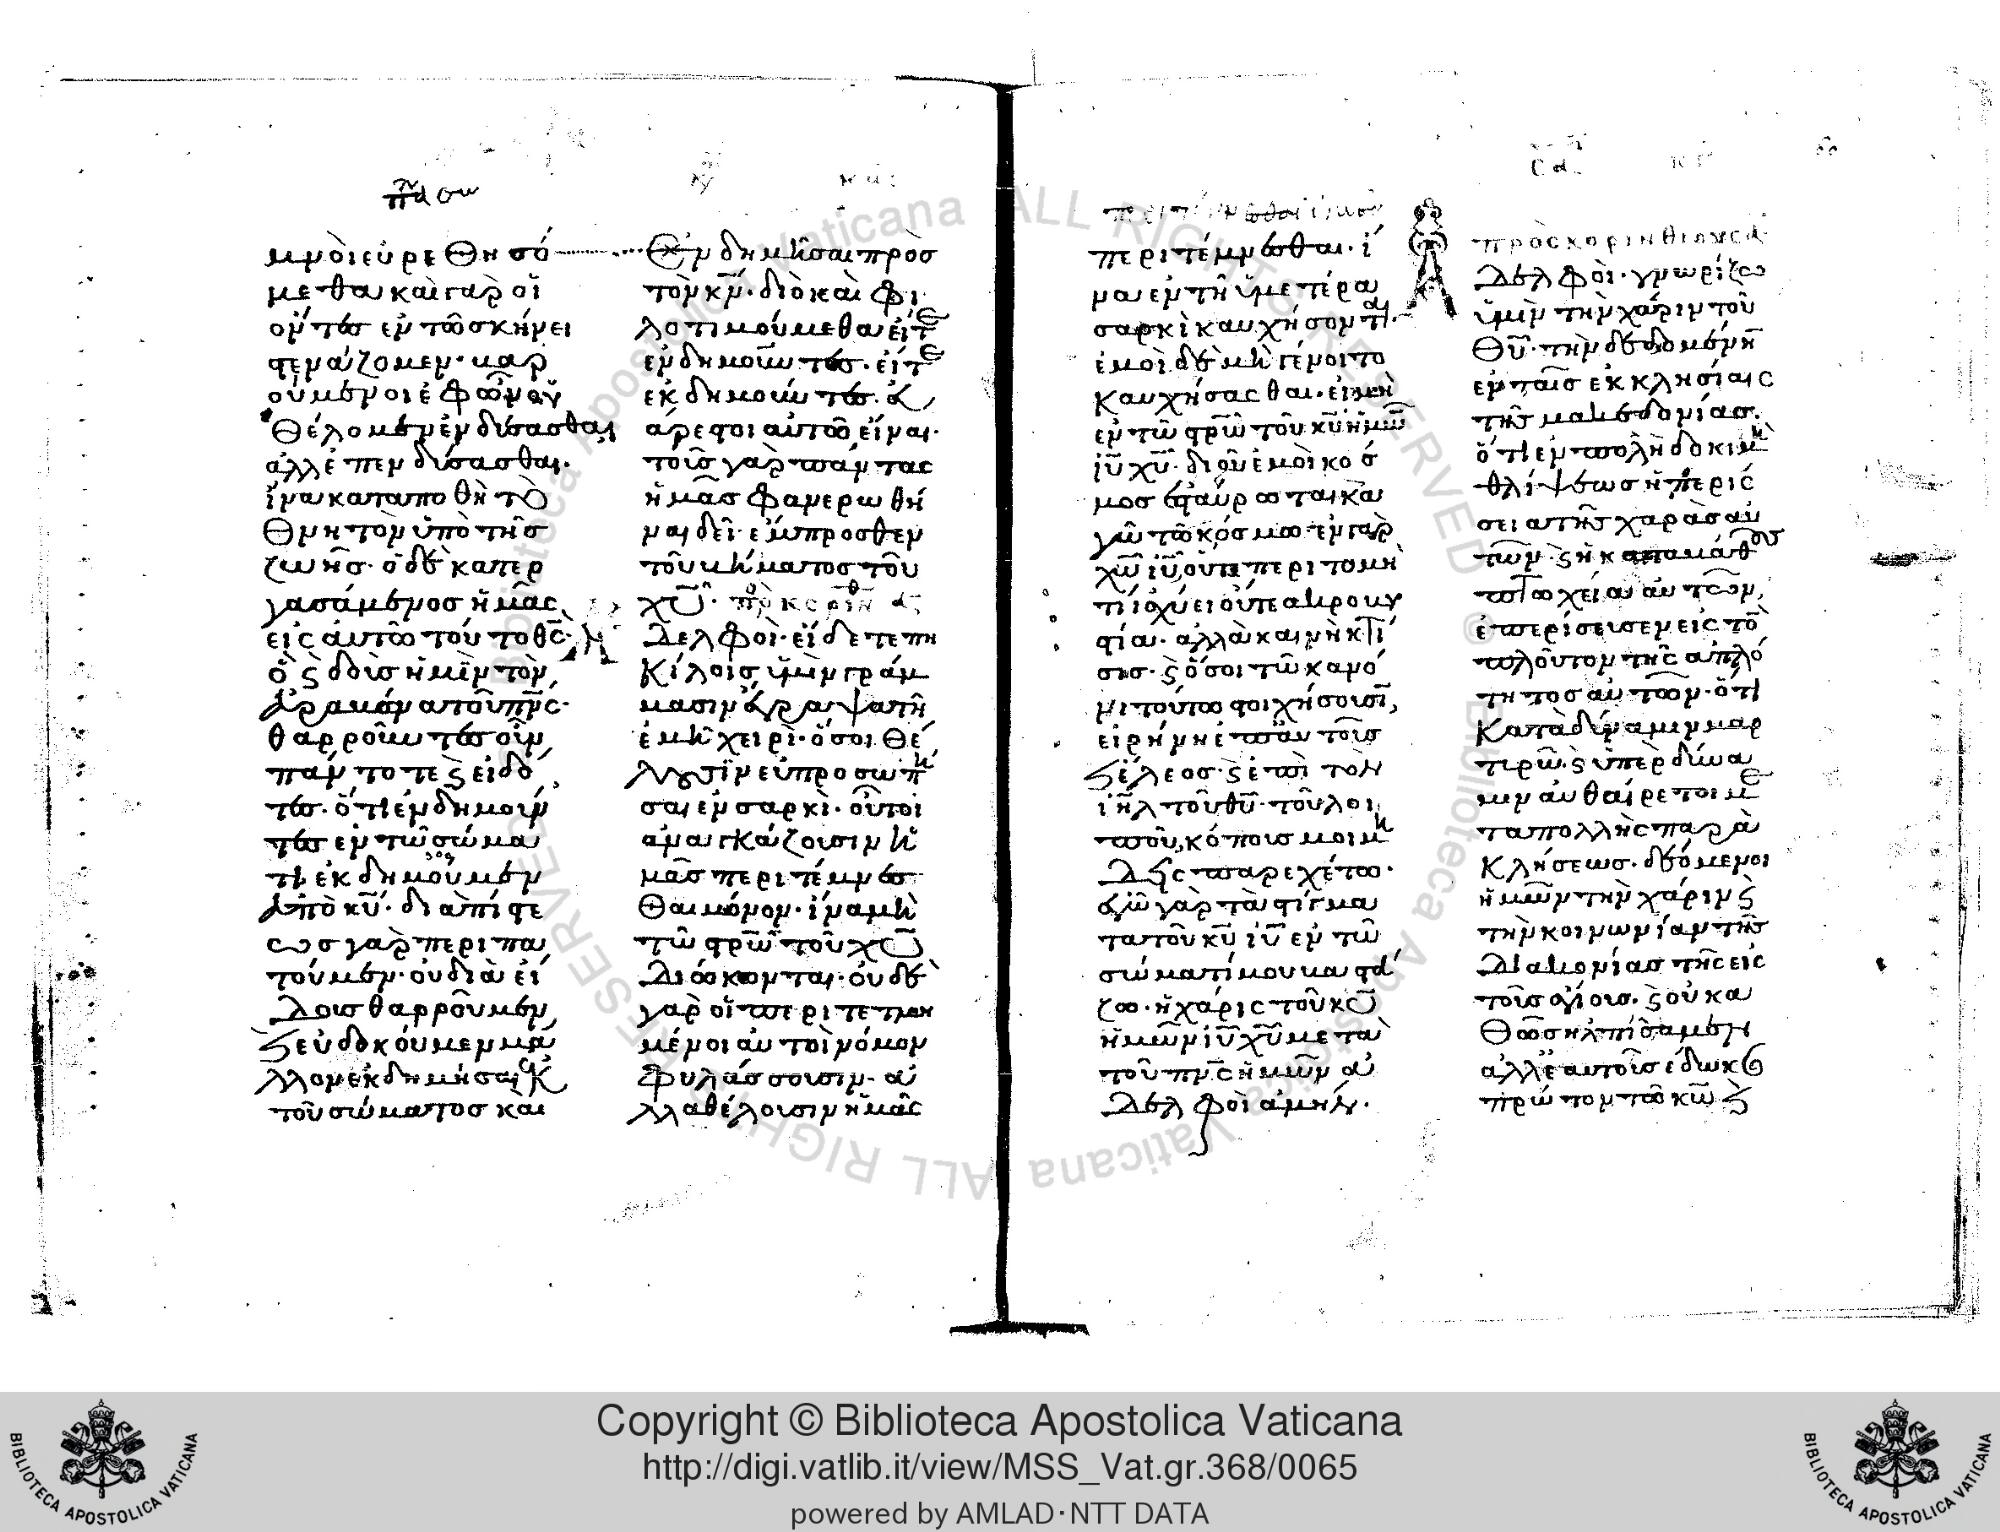 μνοὶ εὑρεθησό
μεθα καὶ γὰρ οἱ
όντες ἐν τῶ σκήνει
στενάζομεν· βαρ
ούμενοι ἐφ ὧ ου
θέλομεν ἐνδύσασθαι
ἀλλ ἐπενδύσασθαι·
ἵνα καταποθῆ τὸ
θνητὸν ὑπὸ τῆς
ζωῆς· ὁ δὲ κατερ
γασάμενος ἡμᾶς
εἰς αὐτῶ τούτο θς·
ὁ ϗ δοὺς ἡμῖν τὸν
ἀραβῶνα τοῦ πνς·
θαρροῦντες οὖν
πάντοτε ϗ εἰδό
τες· ὅτι ἐνδημοῦν
τες ἐν τῶ σώμα
τι ἐκδημοῦμεν
ἀπὸ κυ· διὰ πίστε
ως γὰρ περιπα
τούμεν· οὐ διὰ εἴ
δους θαρροῦμεν
ϗ εὐδοκούμεν μᾶ
λλον ἐκδημήσαι ἐκ
τοῦ σώματος καὶ
ἐνδημῆσαι πρὸς
τὸν κν· διὸ καὶ φι
λοτιμούμεθα εἴτε
ἐνδημοῦντες· εἴτε
ἐκδημοῦντες· εὐ
άρεστοι αὐτῶ εἶναι·
τοὺς γὰρ πάντας
ἡμᾶς φανερωθῆ
ναι δεῖ· ἔμπροσθεν
τοῦ βήματος τοῦ
χυ·
Δελφοὶ· εἴδετε πη
κίλοις ὑμῖν γράμ
μασιν ἔγραψα τῆ
ἐμῆ χειρὶ· ὅσοι θέ
λουσιν εὐπροσωπῆ
σαι ἐν σαρκὶ· οὗτοι
ἀναγκάζουσιν ἡ
μᾶς περιτέμνεσ
θαι μόνον· ἵνα μὴ
τῶ στρω τοῦ χυ
διώκονται· οὐδὲ
γὰρ οἱ περιτετμη
μένοι αὐτοὶ νόμον
φυλάσσουσιν· ἀ
λλα θέλουσιν ἡμᾶς
περιτέμνεσθαι· ἵ
να ἐν τῆ ὑμετέρα
σαρκὶ καυχήσονται·
ἐμοὶ δὲ μὴ γένοιτο
καυχήσασθαι· εἰ μὴ
ἐν τῶ στρω τοῦ κυ ἡμῶν
ιυ χυ· δι οὗ ἐμοὶ κόσ
μος ἐσταύρωται κα
γὼ τῶ κόσμω ἐν γὰρ
χω ιυ οὔτε περιτομὴ
τί ἰσχύει οὔτε ακροβυ
στία· ἀλλὰ καινὴ κτί
σις· ϗ ὅσοι τῶ κανό
νι τούτω στοιχήσουσιν,
εἰρήνη ἐπ αὐτοὺς
ϗ ἔλεος· ϗ ἐπὶ τὸν
ιηλ τοῦ θυ· τοῦ λοι
ποῦ, κόπους μοι μη
δεὶς παρεχέτω·
ἐγὼ γὰρ τὰ στίγμα
τα τοῦ κυ ιυ ἐν τῶ
σώματί μου βαστά
ζω· ἡ χάρις τοῦ κυ
ἡμῶν ιυ χυ μετὰ
τοῦ πνς ἡμῶν ἀ
δελφοὶ ἀμήν·
πρὸς κορινθιους α
Α Δελφοὶ· γνωρίζω
ὑμῖν τὴν χάριν τοῦ
θυ· τὴν δεδομένη
ἐν ταῖς ἐκκλησίαις
τῆς μακεδονίας·
ὅτι ἐν πολῆ δοκιμῆ
θλίψεως ἡ περισ
σεία τῆς χαρὰς αυ
τῶν· ϗ ἡ κατα βάθους
πτωχεία αὐτῶν,
ἐπερίσευσεν εἰς τὸ
πλοῦτον τῆς ἁπλό
τητος αὐτῶν· ὅτι
κατὰ δύναμιν μαρ
τυρῶ· ϗ ὑπὲρ δύνα
μιν αυθαίρετοι με
τα πολλῆς παρὰ
κλήσεως· δεόμενοι
ἡμῶν τὴν χάριν ϗ
τὴν κοινωνίαν τῆς
διακονίας τῆς εἰς
τοὺς αγίους· ϗ οὐ κα
θὼς ἠλπίσαμεν
ἀλλ ἑαυτοῖς ἐδωκε
πρώτον τῶ κω ϗ
Copyright © Biblioteca Apostolica Vaticana
http://digi.vatlib.it/view/MSS_Vat.gr.368/0065
powered by AMLAD·NTT DATA